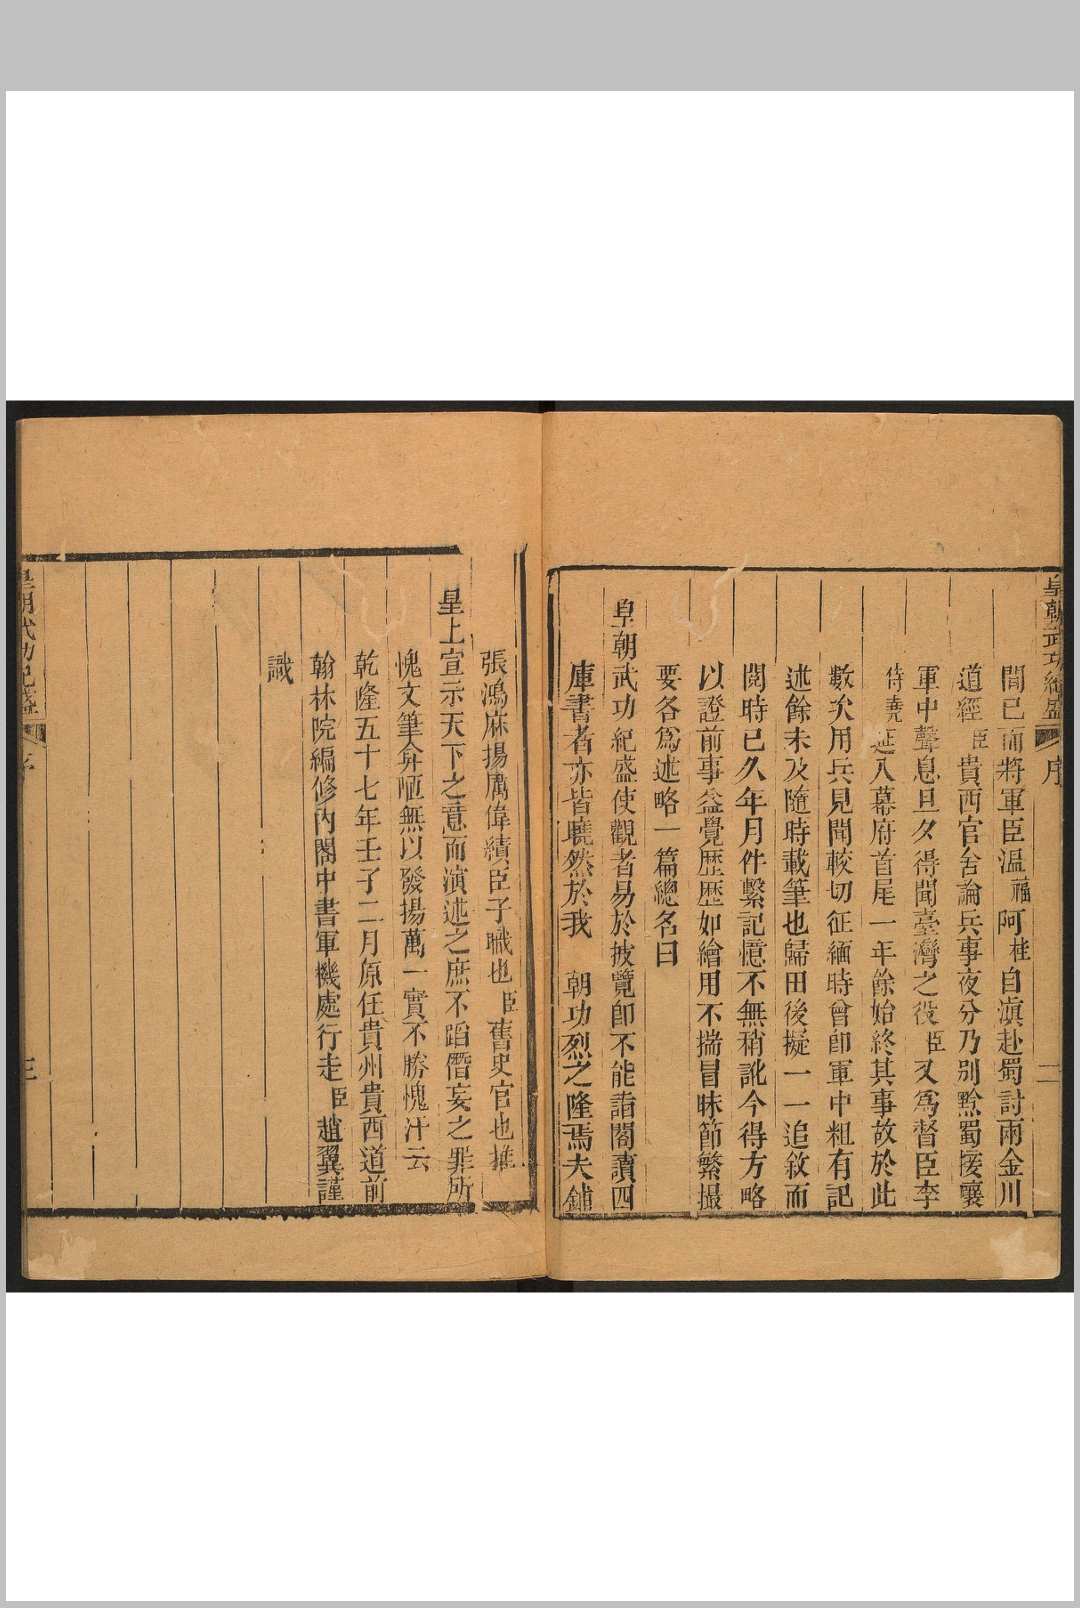 皇朝武功紀盛
序
二
間已而將軍臣溫福阿桂自滇赴蜀討兩金川
道經臣貴西官舍論兵事夜分乃别黔蜀接壤
軍中聲息旦夕得聞臺灣之役臣又爲督臣李
侍堯延入幕府首尾一年餘始終其事故於此
數次用兵見聞較切征緬時曾卽軍中粗有記
述餘未及隨時載筆也歸田後擬一一追敘而
閱時已久年月件繫記憶不無稍訛今得方略
以證前事益覺歷歷如繪用不揣冒昧節繁撮
要各爲述略一篇總名曰
皇朝武功紀盛使觀者易於披覽卽不能詣閣讀四
庫書者亦皆曉然於我　朝功烈之隆焉夫鋪
張鴻庥揚厲偉績臣子職也臣舊史官也推
皇上宣示天下之意而演述之庶不蹈僭妄之罪所
愧文筆弇陋無以發揚萬一實不勝愧汗云
乾隆五十七年壬子二月原任貴州貴西道前
翰林院編修內閣中書軍機處行走臣趙翼謹
識
皇朝武功紀盛
序
三